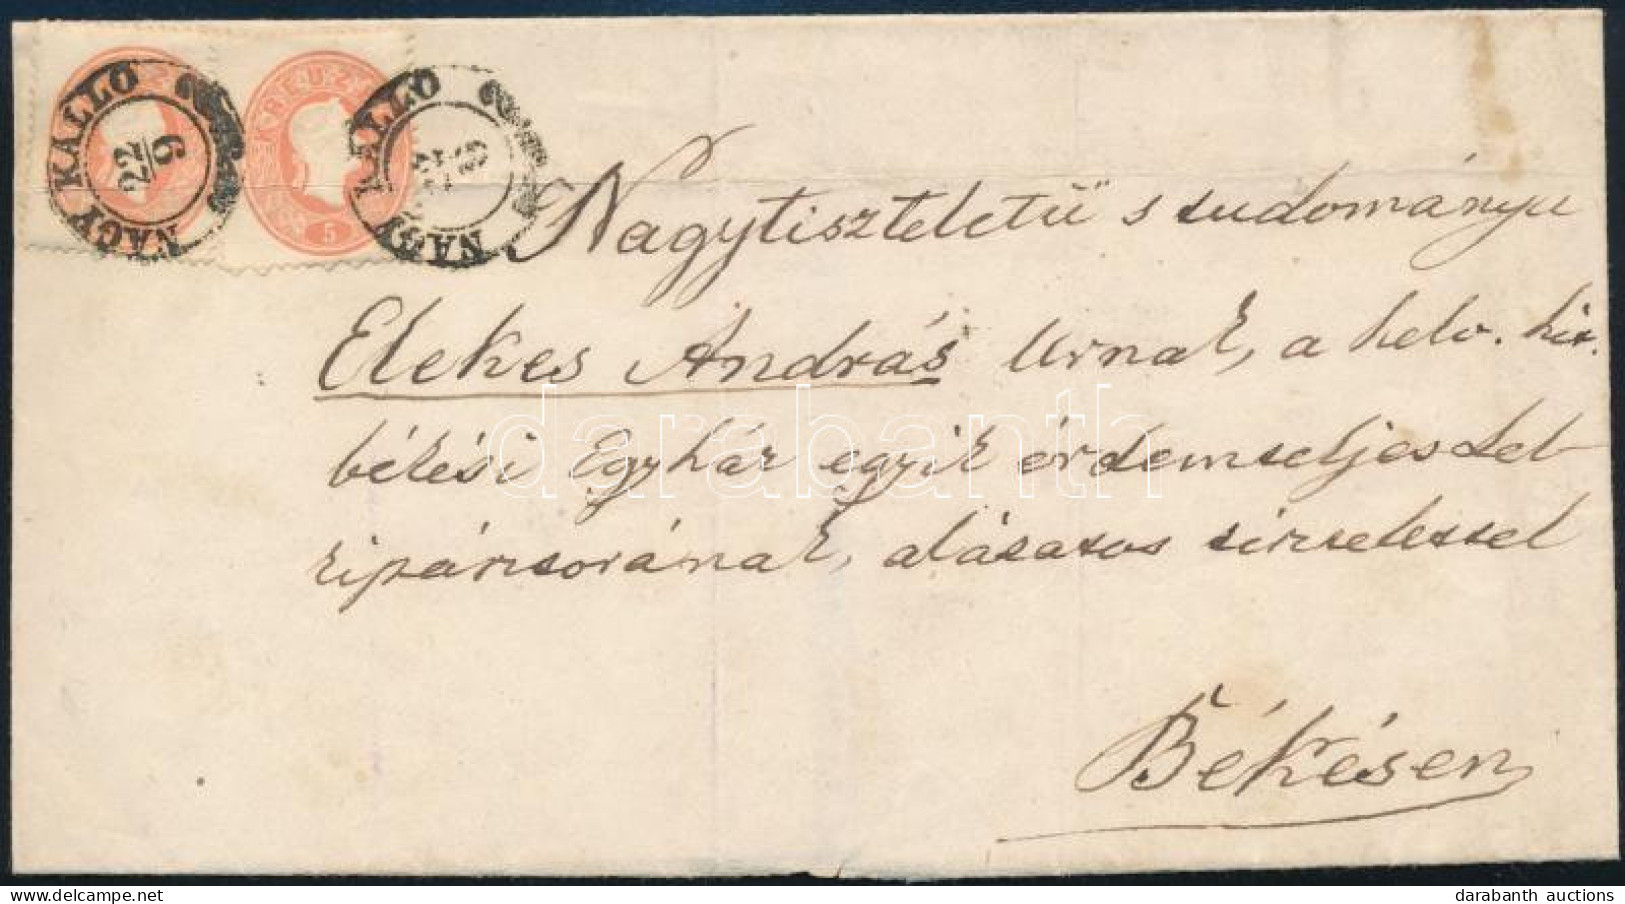 KREUZER
5
NAGY KÁLLÓ
22/9
NAGY KÁLLÓ
22/9
Nagytiszteletü s tudományu
Elekes András Urnak, a helv. hit.
békési Egyház egyik érdemteljes Lel-
kipásztorának, alázatos tisztelettel
Békésen
darabanth
www.delcampe.net
darabanth auctions